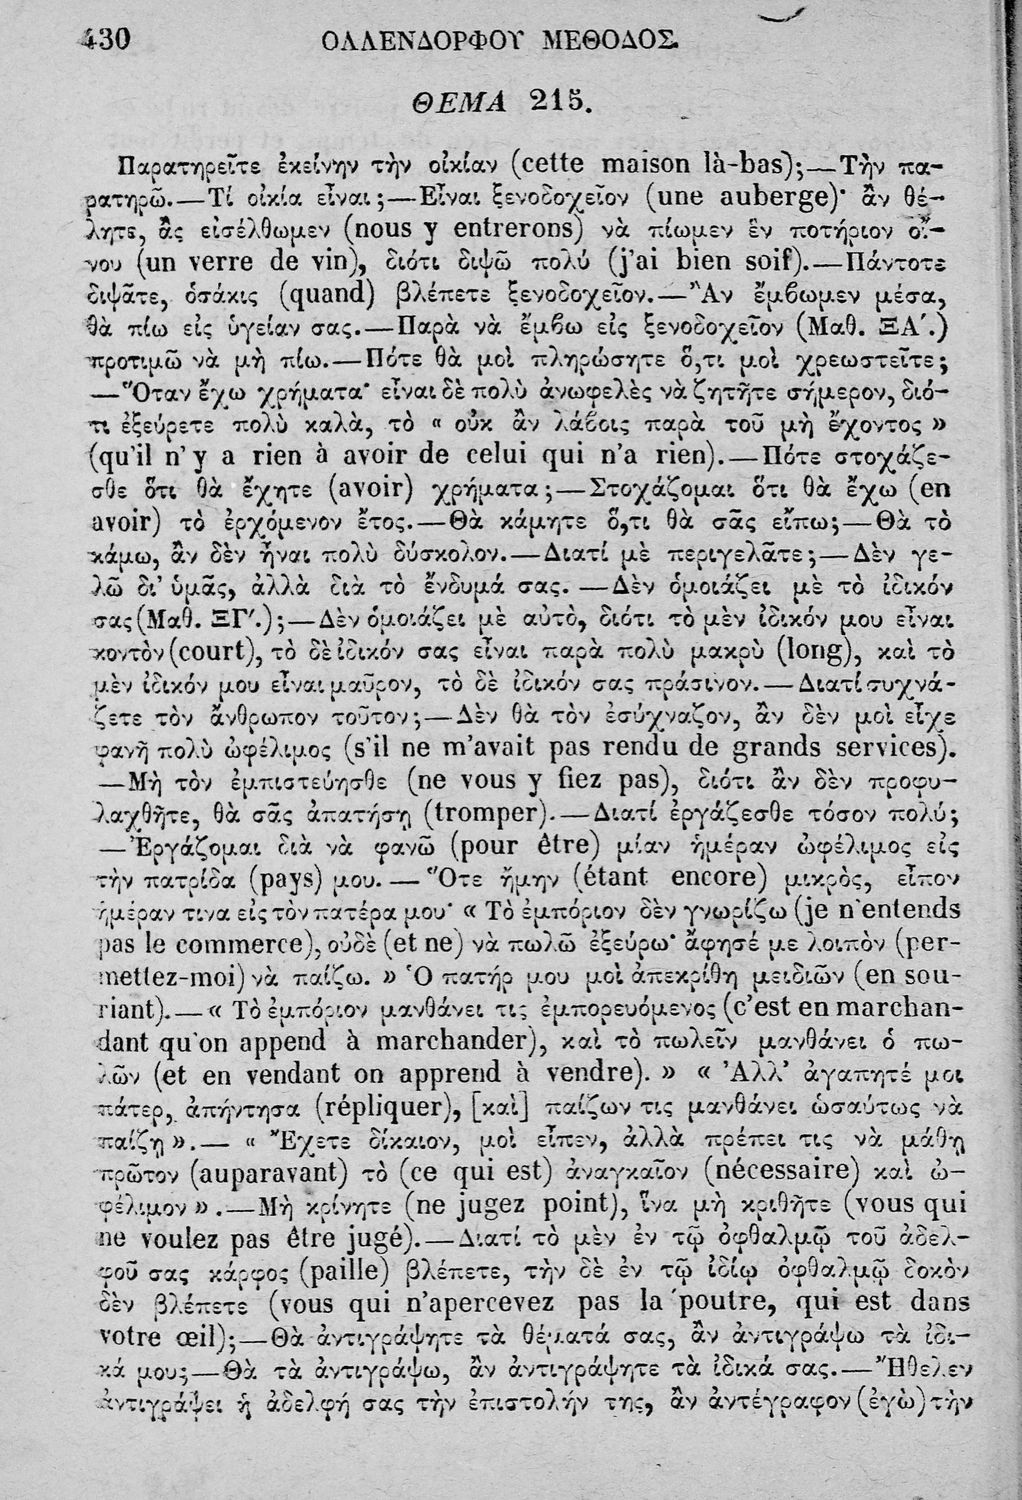 430 ΟΛΛΕΝΔΟΡΦΟΥ ΜΕΘΟΔΟΣ
ΘΕΜΑ 215.
Παρατηρεῖτε ἐκείνην τὴν οἰκίαν (cette maison là-bas);—Τὴν πα-
ρατηρῶ.—Τί οἰκία εἶναι;—Εἶναι ξενοδοχεῖον (une auberge)· ἂν θέ-
λητε, ἂς εἰσέλθωμεν (nous y entrerons) νὰ πίωμεν ἓν ποτήριον οἴ-
νου (un verre de vin), διότι διψῶ πολύ (j'ai bien soif).—Πάντοτε
διψᾶτε, ὁσάκις (quand) βλέπετε ξενοδοχεῖον.—Ἂν ἔμβωμεν μέσα,
θὰ πίω εἰς ὑγείαν σας.—Παρὰ νὰ ἔμβω εἰς ξενοδοχεῖον (Μαθ. ΞΑ΄.)
προτιμῶ νὰ μὴ πίω.—Πότε θὰ μοὶ πληρώσητε ὅ,τι μοὶ χρεωστεῖτε;
—Ὅταν ἔχω χρήματα· εἶναι δὲ πολὺ ἀνωφελὲς νὰ ζητῆτε σήμερον, διό-
τι ἐξεύρετε πολὺ καλὰ, τὸ « οὐκ ἂν λάβοις παρὰ τοῦ μὴ ἔχοντος »
(qu'il n'y a rien à avoir de celui qui n'a rien).—Πότε στοχάζε-
σθε ὅτι θὰ ἔχητε (avoir) χρήματα;—Στοχάζομαι ὅτι θὰ ἔχω (en
avoir) τὸ ἐρχόμενον ἔτος.—Θὰ κάμητε ὅ,τι θὰ σᾶς εἴπω;—Θὰ τὸ
κάμω, ἂν δὲν ἦναι πολὺ δύσκολον.—Διατί μὲ περιγελᾶτε;—Δὲν γε-
λῶ δι' ὑμᾶς, ἀλλὰ διὰ τὸ ἔνδυμά σας. —Δὲν ὁμοιάζει μὲ τὸ ἰδικόν
σας (Μαθ. ΞΓ΄.);—Δὲν ὁμοιάζει μὲ αὐτὸ, διότι τὸ μὲν ἰδικόν μου εἶναι
κοντὸν (court), τὸ δὲ ἰδικόν σας εἶναι παρὰ πολὺ μακρὺ (long), καὶ τὸ
μὲν ἰδικόν μου εἶναι μαῦρον, τὸ δὲ ἰδικόν σας πράσινον.—Διατί συχνά-
ζετε τὸν ἄνθρωπον τοῦτον;—Δὲν θὰ τὸν ἐσύχναζον, ἂν δὲν μοὶ εἶχε
φανῆ πολὺ ὠφέλιμος (s'il ne m'avait pas rendu de grands services).
—Μὴ τὸν ἐμπιστεύησθε (ne vous y fiez pas), διότι ἂν δὲν προφυ-
λαχθῆτε, θὰ σᾶς ἀπατήσῃ (tromper).—Διατί ἐργάζεσθε τόσον πολύ;
—Ἐργάζομαι διὰ νὰ φανῶ (pour être) μίαν ἡμέραν ὠφέλιμος εἰς
τὴν πατρίδα (pays) μου. — Ὅτε ἤμην (étant encore) μικρὸς, εἶπον
ἡμέραν τινα εἰς τὸν πατέρα μου· « Τὸ ἐμπόριον δὲν γνωρίζω (je n'entends
pas le commerce), οὐδὲ (et ne) νὰ πωλῶ ἐξεύρω· ἄφησέ με λοιπὸν (per-
mettez-moi) νὰ παίζω. » Ὁ πατήρ μου μοὶ ἀπεκρίθη μειδιῶν (en sou-
riant).—« Τὸ ἐμπόριον μανθάνει τις ἐμπορευόμενος (c'est en marchan-
dant qu'on append à marchander), καὶ τὸ πωλεῖν μανθάνει ὁ πω-
λῶν (et en vendant on apprend à vendre). » « Ἀλλ' ἀγαπητέ μοι
πάτερ, ἀπήντησα (répliquer), [καὶ] παίζων τις μανθάνει ὡσαύτως νὰ
παίζῃ ».— « Ἔχετε δίκαιον, μοὶ εἶπεν, ἀλλὰ πρέπει τις νὰ μάθῃ
πρῶτον (auparavant) τὸ (ce qui est) ἀναγκαῖον (nécessaire) καὶ ὠ-
φέλιμον ».—Μὴ κρίνητε (ne jugez point), ἵνα μὴ κριθῆτε (vous qui
ne voulez pas être jugé).—Διατί τὸ μὲν ἐν τῷ ὀφθαλμῷ τοῦ ἀδελ-
φοῦ σας κάρφος (paille) βλέπετε, τὴν δὲ ἐν τῷ ἰδίῳ ὀφθαλμῷ δοκὸν
δὲν βλέπετε (vous qui n'apercevez pas la poutre, qui est dans
votre œil);—Θὰ ἀντιγράψητε τὰ θέματά σας, ἂν ἀντιγράψω τὰ ἰδι-
κά μου;—Θὰ τὰ ἀντιγράψω, ἂν ἀντιγράψητε τὰ ἰδικά σας.—Ἤθελεν
ἀντιγράψει ἡ ἀδελφή σας τὴν ἐπιστολήν της, ἂν ἀντέγραφον (ἐγὼ) τὴν